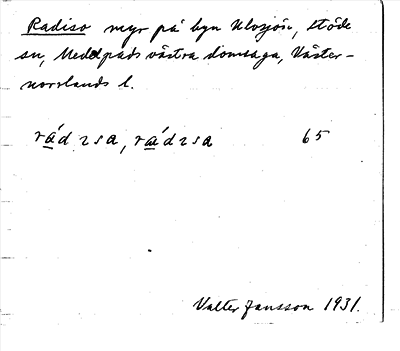 Radiso myr på byn Ulvsjön, Stöde
sn, Medelpads västra domsaga, Väster-
norrlands l.
rádısa, rádısa 65
Valter Jansson 1931.